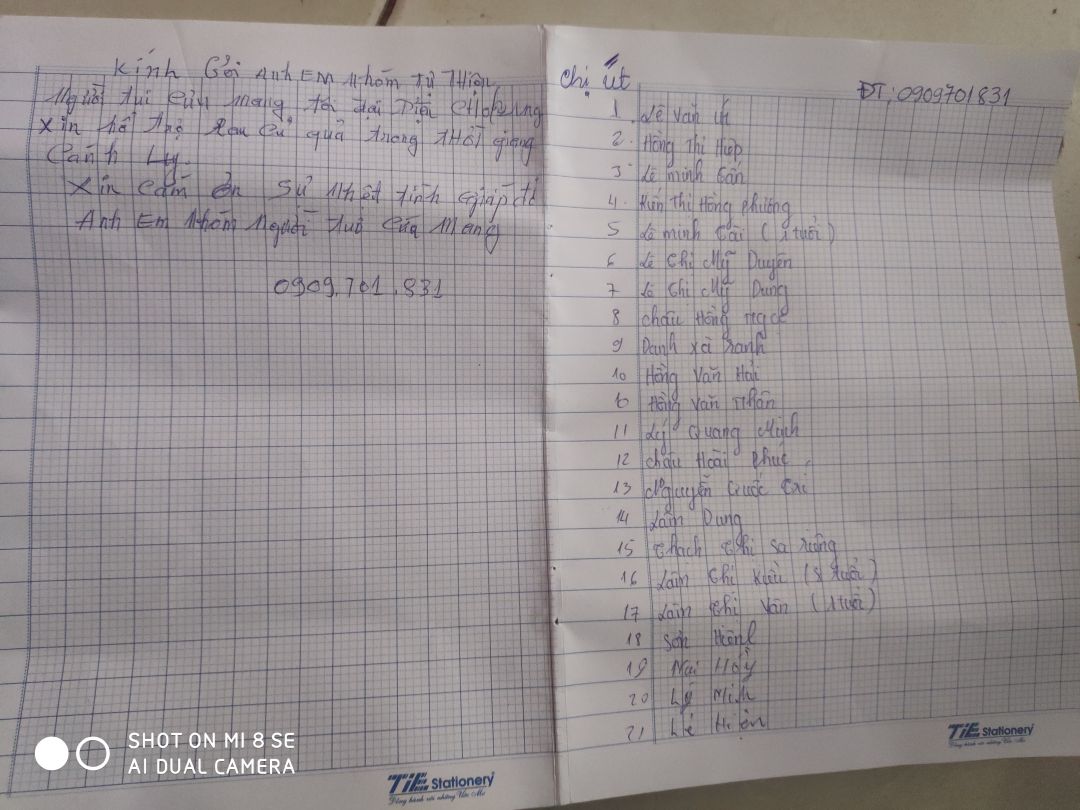 Kính Gởi Anh Em Nhóm Từ Thiện
Người tui cứu mang tôi đại Diện
Xin hổ trợ rau củ quả trong thời giang
Cánh Ly.
Xin Cảm ơn Sự Nhết tình Giúp đỡ
Anh Em Nhóm Người tui Cứu Mang
0909.701.831
Chị út
ĐT: 0909701831
1 Lê Văn
2 Hồng Thị Hiệp
3 Lê minh
4 Kiên Thị Hồng phương
5 Lê minh Tài (1 tuổi)
6 Lê Thị Mỹ Duyên
7 Lê Thị Mỹ Dung
8 châu Hồng ngọc
9 Danh xà
10 Hồng Văn Hải
10 Hồng Văn nhân
11 Lý Quang Minh
12 châu Hoài phúc
13 Nguyễn Quốc
14 Lâm Dung
15 thạch thị sa
16 Lâm thị kiều (8 tuổi)
17 Lâm thị Vân (1 tuổi)
18 Sơn
19 Nai
20 Lý Minh
21 Lê Hiện
TiE Stationery
Đồng hành với những Ước Mơ
TiE Stationery
Đồng hành với những Ước Mơ
SHOT ON MI 8 SE
AI DUAL CAMERA